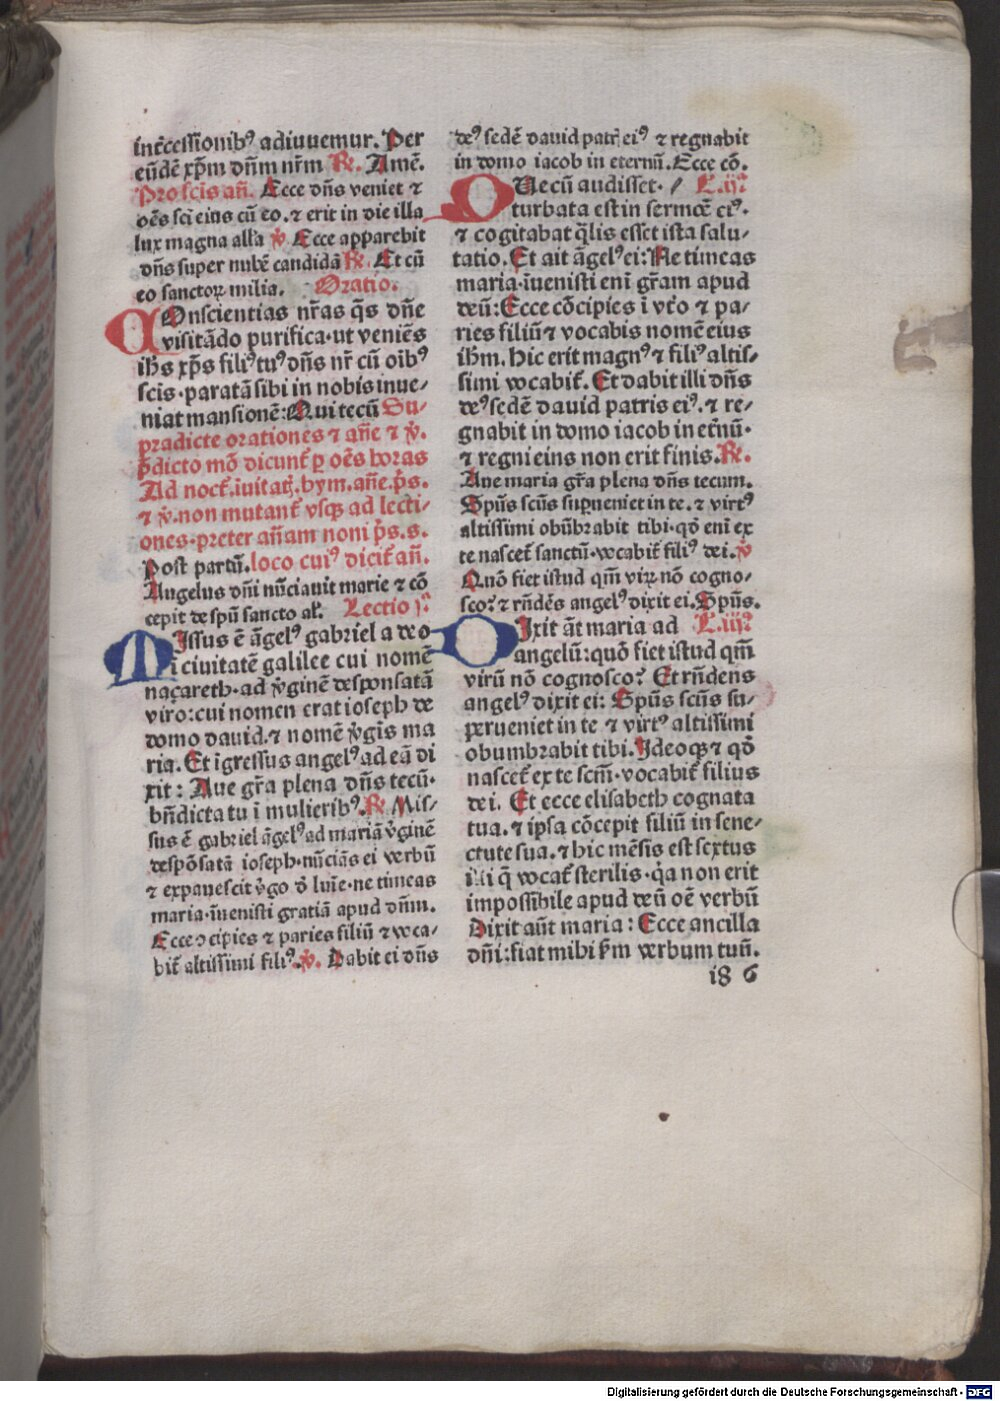 int̄cessionibꝰ adiuuemur. Per
eūdē xp̄m dn̄m nr̄m ℟. Amē.
Pro scis an̄. Ecce dn̄s veniet ⁊
oēs sci eius cū eo. ⁊ erit in die illa
lux magna all'a ℣ Ecce apparebit
dn̄s super nubē candidā ℟. Et cū
eo sanctoꝝ milia. Oratio.
COnscientias nr̄as q̄s dn̄e
visitādo purifica·vt veniēs
ih̄s xp̄s filiꝰ tuꝰ dn̄s nr̄ cū oībꝰ
scis·paratā sibi in nobis inue⸗
niat mansionē: Qui tecū Su⸗
pradicte orationes ⁊ an̄e ⁊ ℣.
p̄dicto mō dicunt᷑ ꝑ oēs horas
Ad noct᷑. īuitat᷑. hym. an̄e. p̄s.
⁊ ℣. non mutant᷑ vsqꝫ ad lecti⸗
ones·preter an̄am noni p̄s. s.
Post partū. loco cuiꝰ dicit᷑ an̄.
Angelus dn̄i nūciauit marie ⁊ cō
cepit de spū sancto al'. Lectio j.ª
MIssus ē āgelꝰ gabriel a deo
ī ciuitatē galilee cui nomē
naçareth·ad v̄ginē desponsatā
viro: cui nomen erat ioseph de
domo dauid. ⁊ nomē v̄gīs ma
ria. Et īgressus angelꝰ ad eā di
xit: Aue gr̄a plena dn̄s tecū·
bn̄dicta tu ī mulieribꝰ. ℟ Mis⸗
sus ē gabriel āgelꝰ ad mariā v̄ginē
despōsatā ioseph·nūciās ei verbū
⁊ expauescit v̄go d̄ luīe·ne timeas
maria·īuenisti gratiā apud dn̄m.
Ecce ↄcipies ⁊ paries filiū ⁊ voca⸗
bit᷑ altissimi filiꝰ. ℣. Dabit ei dn̄s
deꝰ sedē dauid patr̄ eiꝰ ⁊ regnabit
in domo iacob in eternū. Ecce cō.
QUe cū audisset· L. ij.ª
turbata est in sermōe eiꝰ·
⁊ cogitabat q̄lis esset ista salu⸗
tatio. Et ait āgelꝰ ei: Ne timeas
maria·īuenisti eni gr̄am apud
deū: Ecce cōcipies ī vt̄o ⁊ pa⸗
ries filiū ⁊ vocabis nomē eius
ih̄m. Hic erit magnꝰ ⁊ filiꝰ altis⸗
simi vocabit᷑. Et dabit illi dn̄s
deꝰ sedē dauid patris eiꝰ. ⁊ re⸗
gnabit in domo iacob in et̄nū·
⁊ regni eius non erit finis. ℟.
Aue maria gr̄a plena dn̄s tecum.
Spūs scūs suꝑueniet in te. ⁊ virtꝰ
altissimi obūbrabit tibi·qd̄ eni ex
te nascet᷑ sanctū·vocabit᷑ filiꝰ dei. ℣
Quō fiet istud qm̄ viꝝ nō cogno⸗
sco? ⁊ rn̄dēs angelꝰ dixit ei. Spūs.
DIxit āt maria ad L. iij.ª
angelū: quō fiet istud qm̄
virū nō cognosco? Et rn̄dens
angelꝰ dixit ei: Spūs scūs su⸗
perueniet in te ⁊ virtꝰ altissimi
obumbrabit tibi. Ideoqꝫ ⁊ qd̄
nascet᷑ ex te scm̄·vocabit᷑ filius
dei. Et ecce elisabeth cognata
tua. ⁊ ipsa cōcepit filiū in sene⸗
ctute sua. ⁊ hic mēsis est sextus
illi q̄ vocat᷑ sterilis·q̇a non erit
impossibile apud deū oē verbū
Dixit aūt maria: Ecce ancilla
dn̄i: fiat mihi s̄m verbum tuū.
i8 6
Digitalisierung gefördert durch die Deutsche Forschungsgemeinschaft - DFG